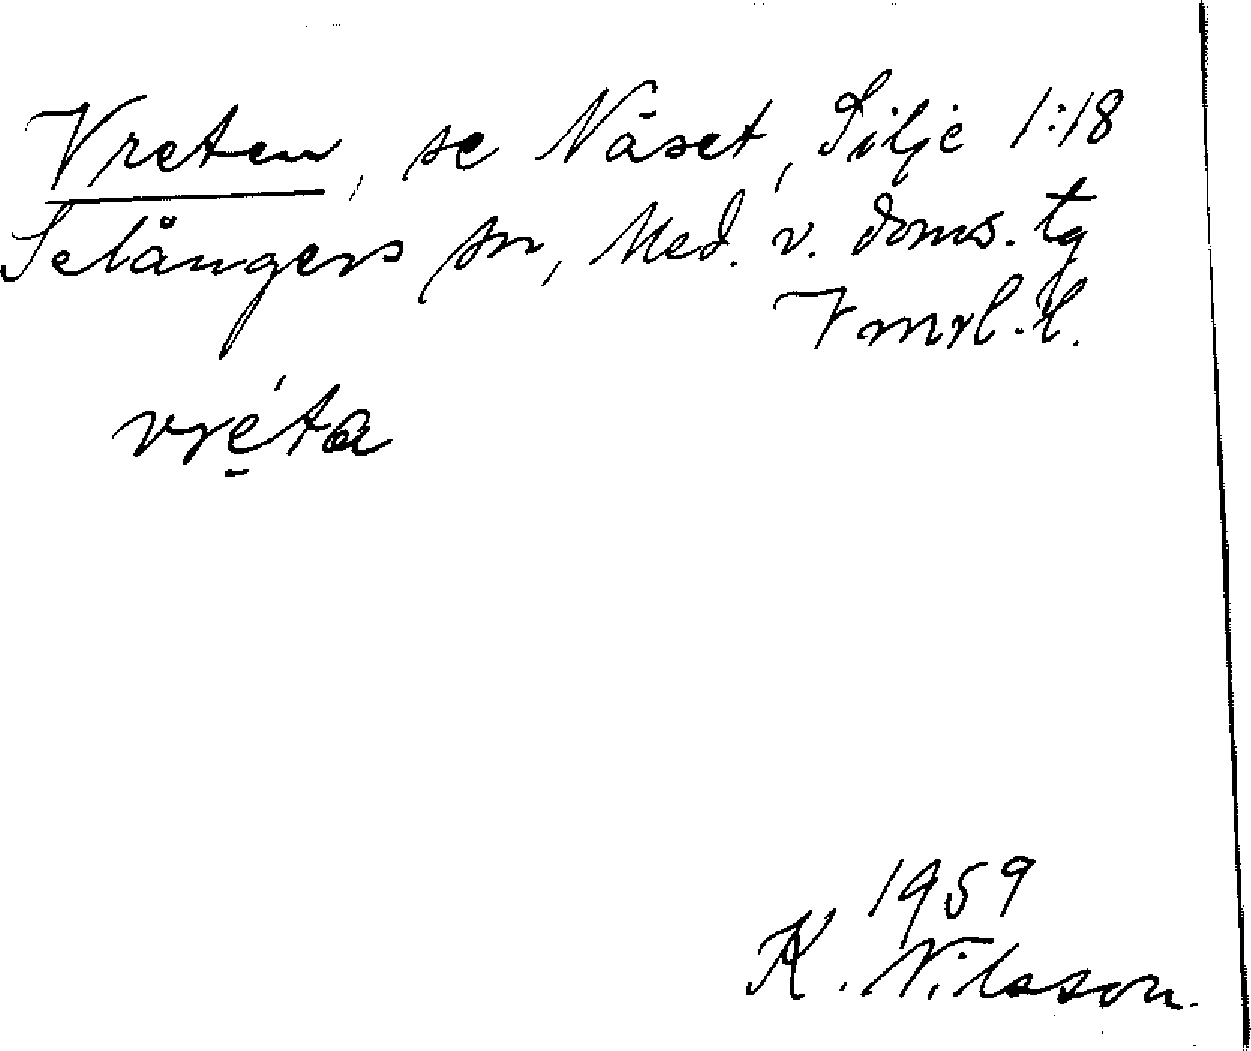 Vreten, se Näset, Silje 1:18
Selångers sn, Med. v. doms. tg
Vmrl. l.
vre̱´ta
1959
K. Nilsson.